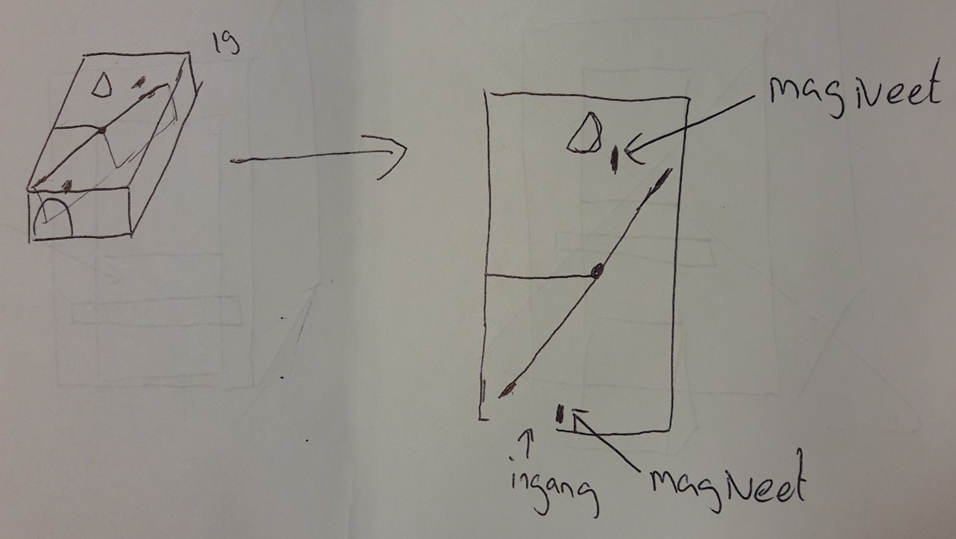 19
magNeet
ingang
magNeet